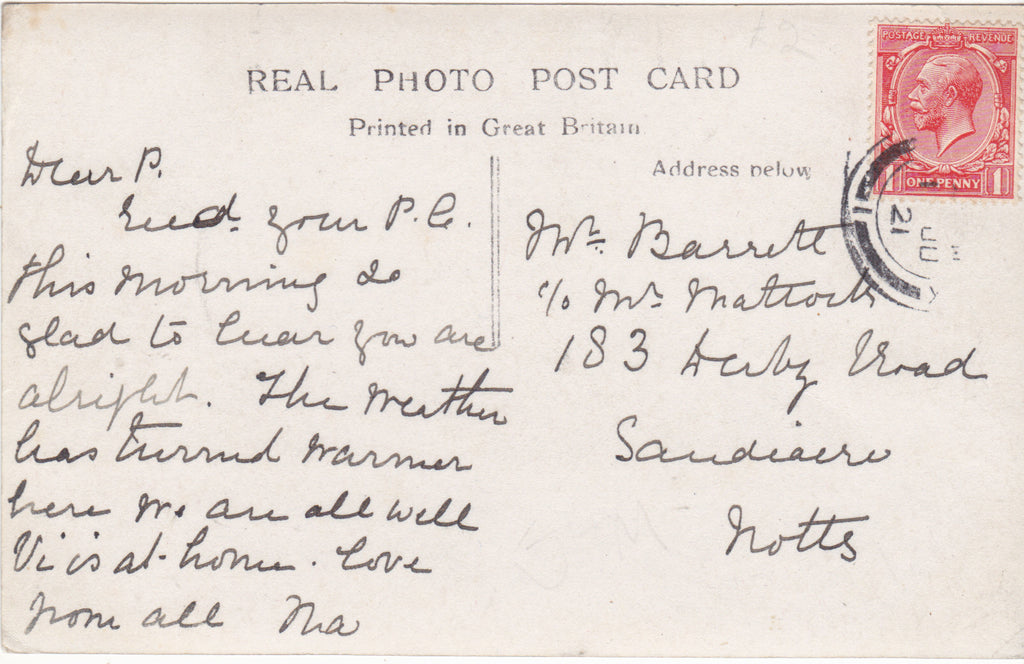 REAL PHOTO POST CARD
Printed in Great Britain
Address below
POSTAGE REVENUE
ONE PENNY
1 1
21 JU
Dear P.
Recd. your P.C.
this morning so
glad to hear you are
alright. The weather
has turned warmer
here we are all well
Vi is at home. love
from all Ma
Mr. Barrett
c/o Mrs Mattock
183 Derby Road
Sandiacre
Notts